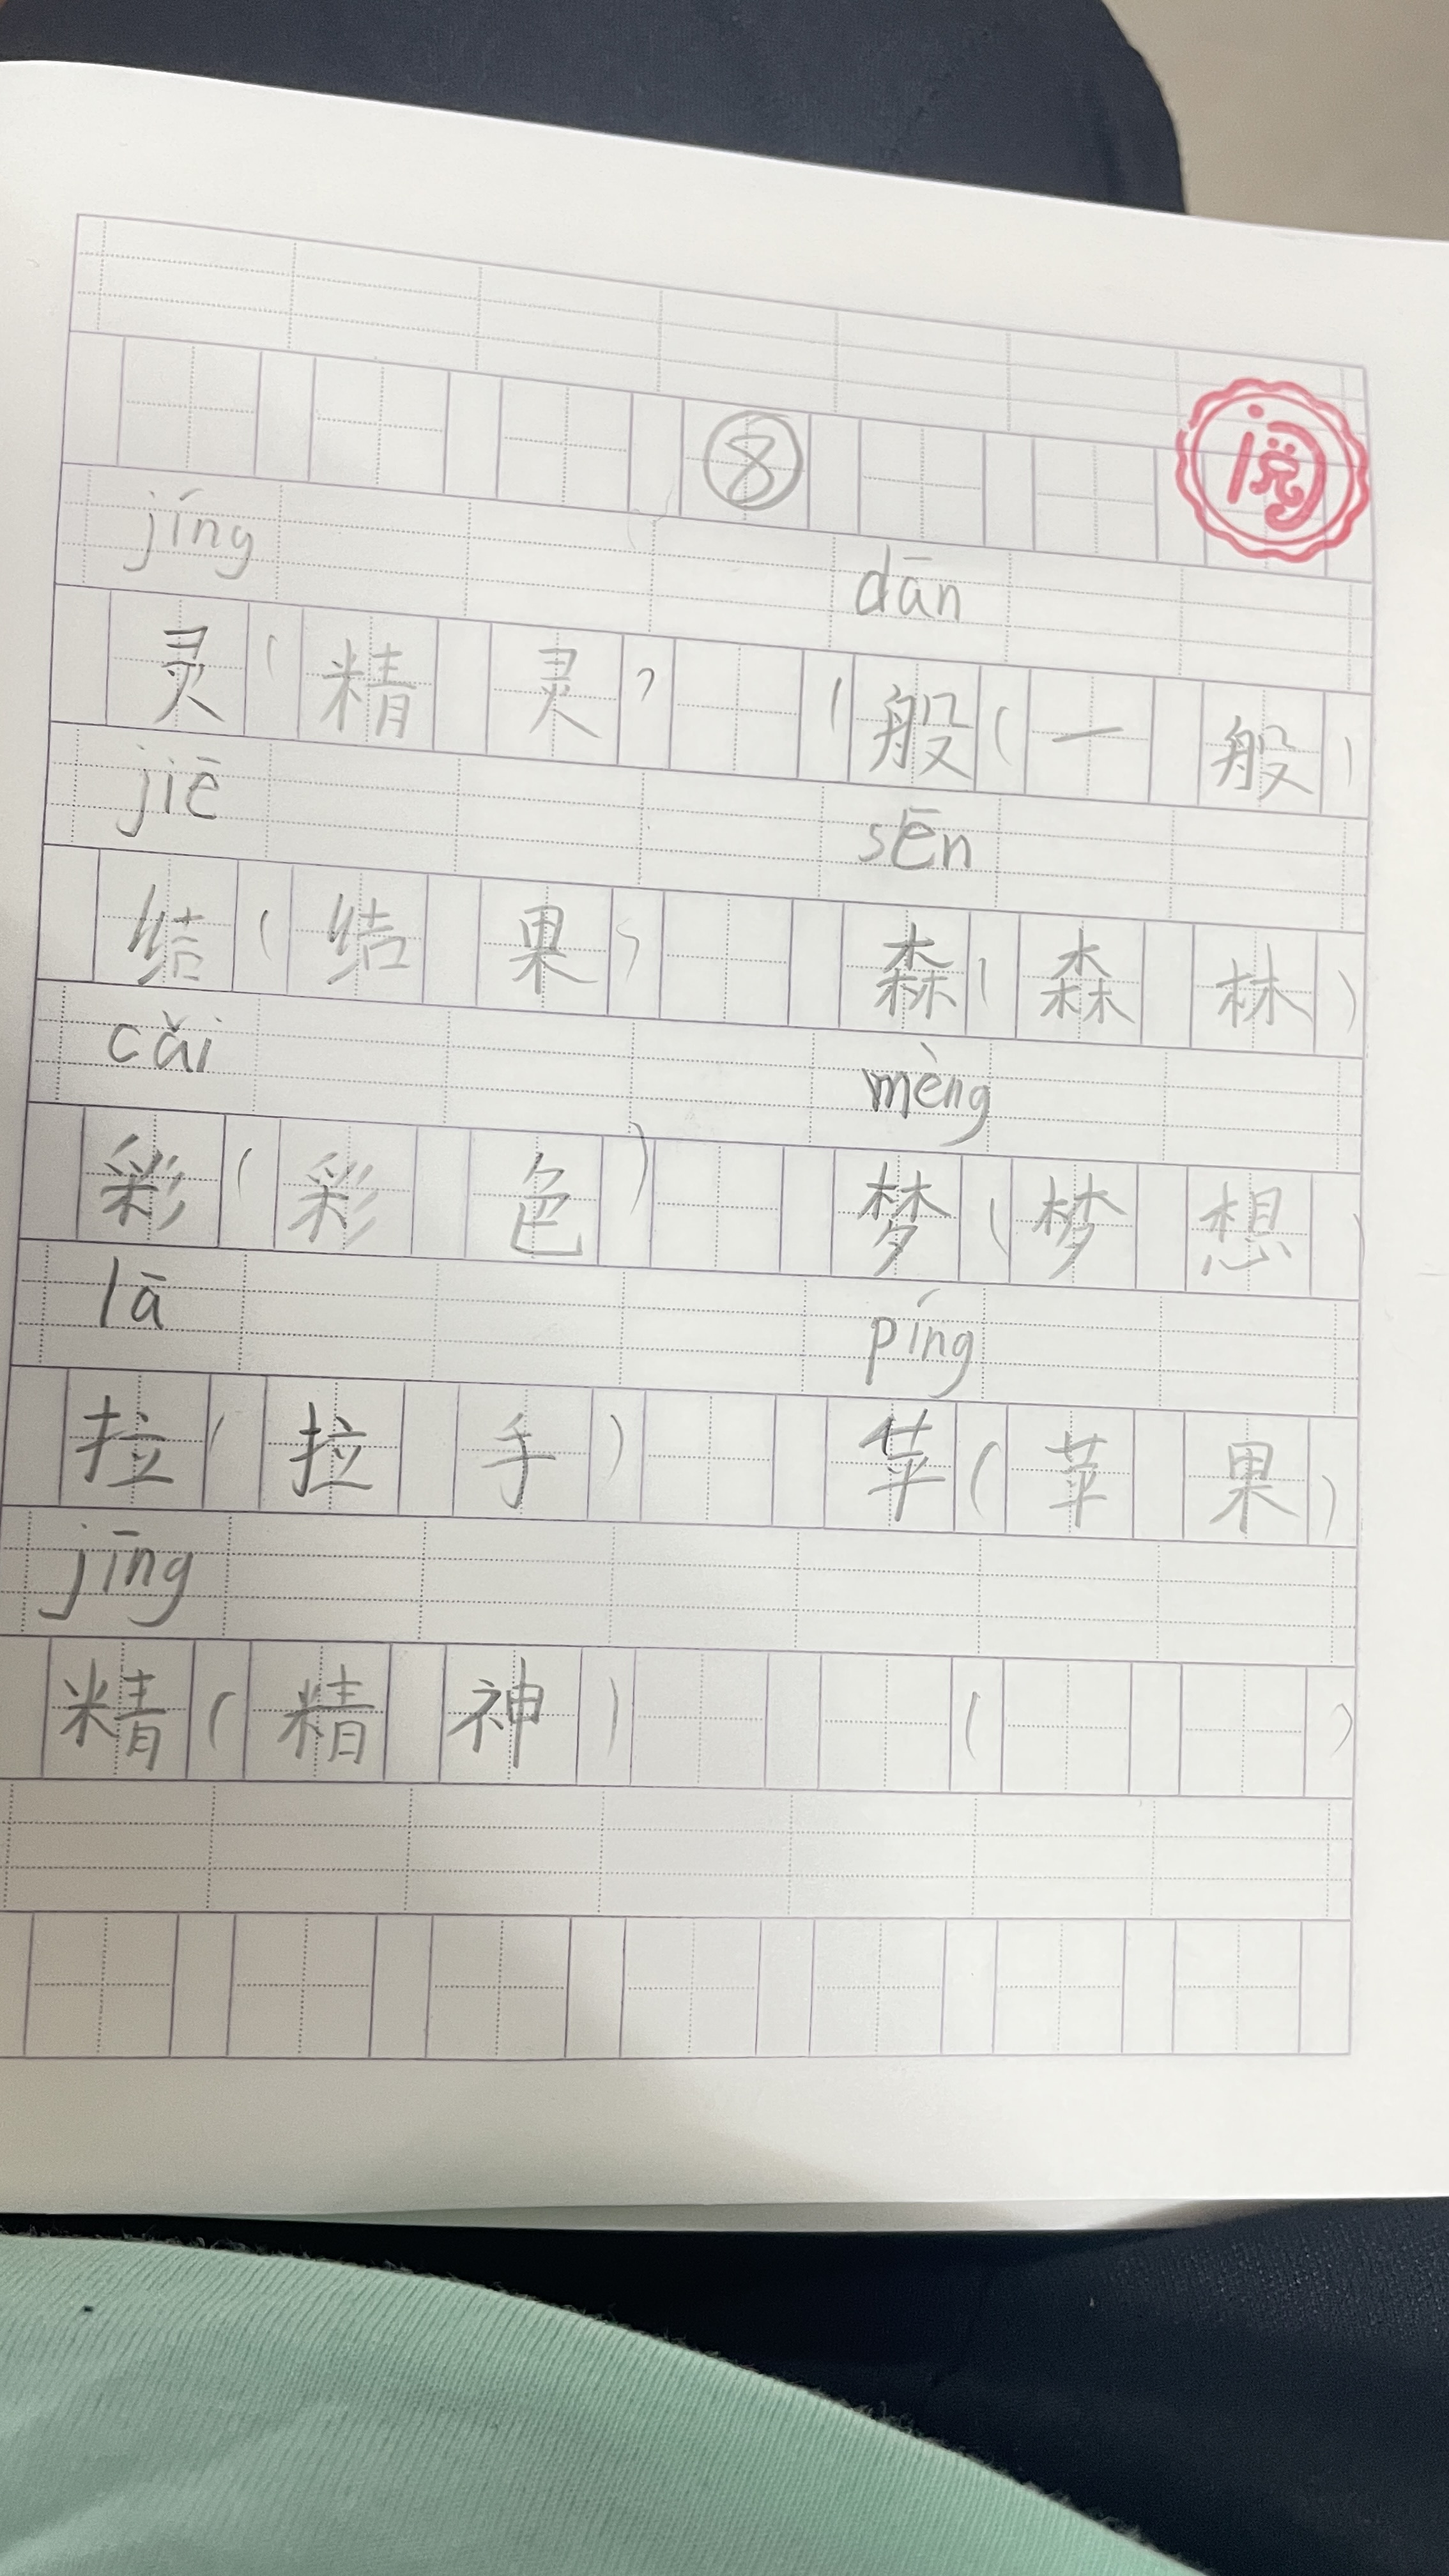 ⑧ 阅
jíng dān
灵(精灵) (般(一般)
jiē sēn
结(结果) 森(森林)
cǎi mèng
彩(彩色) 梦(梦想)
lā píng
拉(拉手) 苹(苹果)
jīng
精(精神) ( )